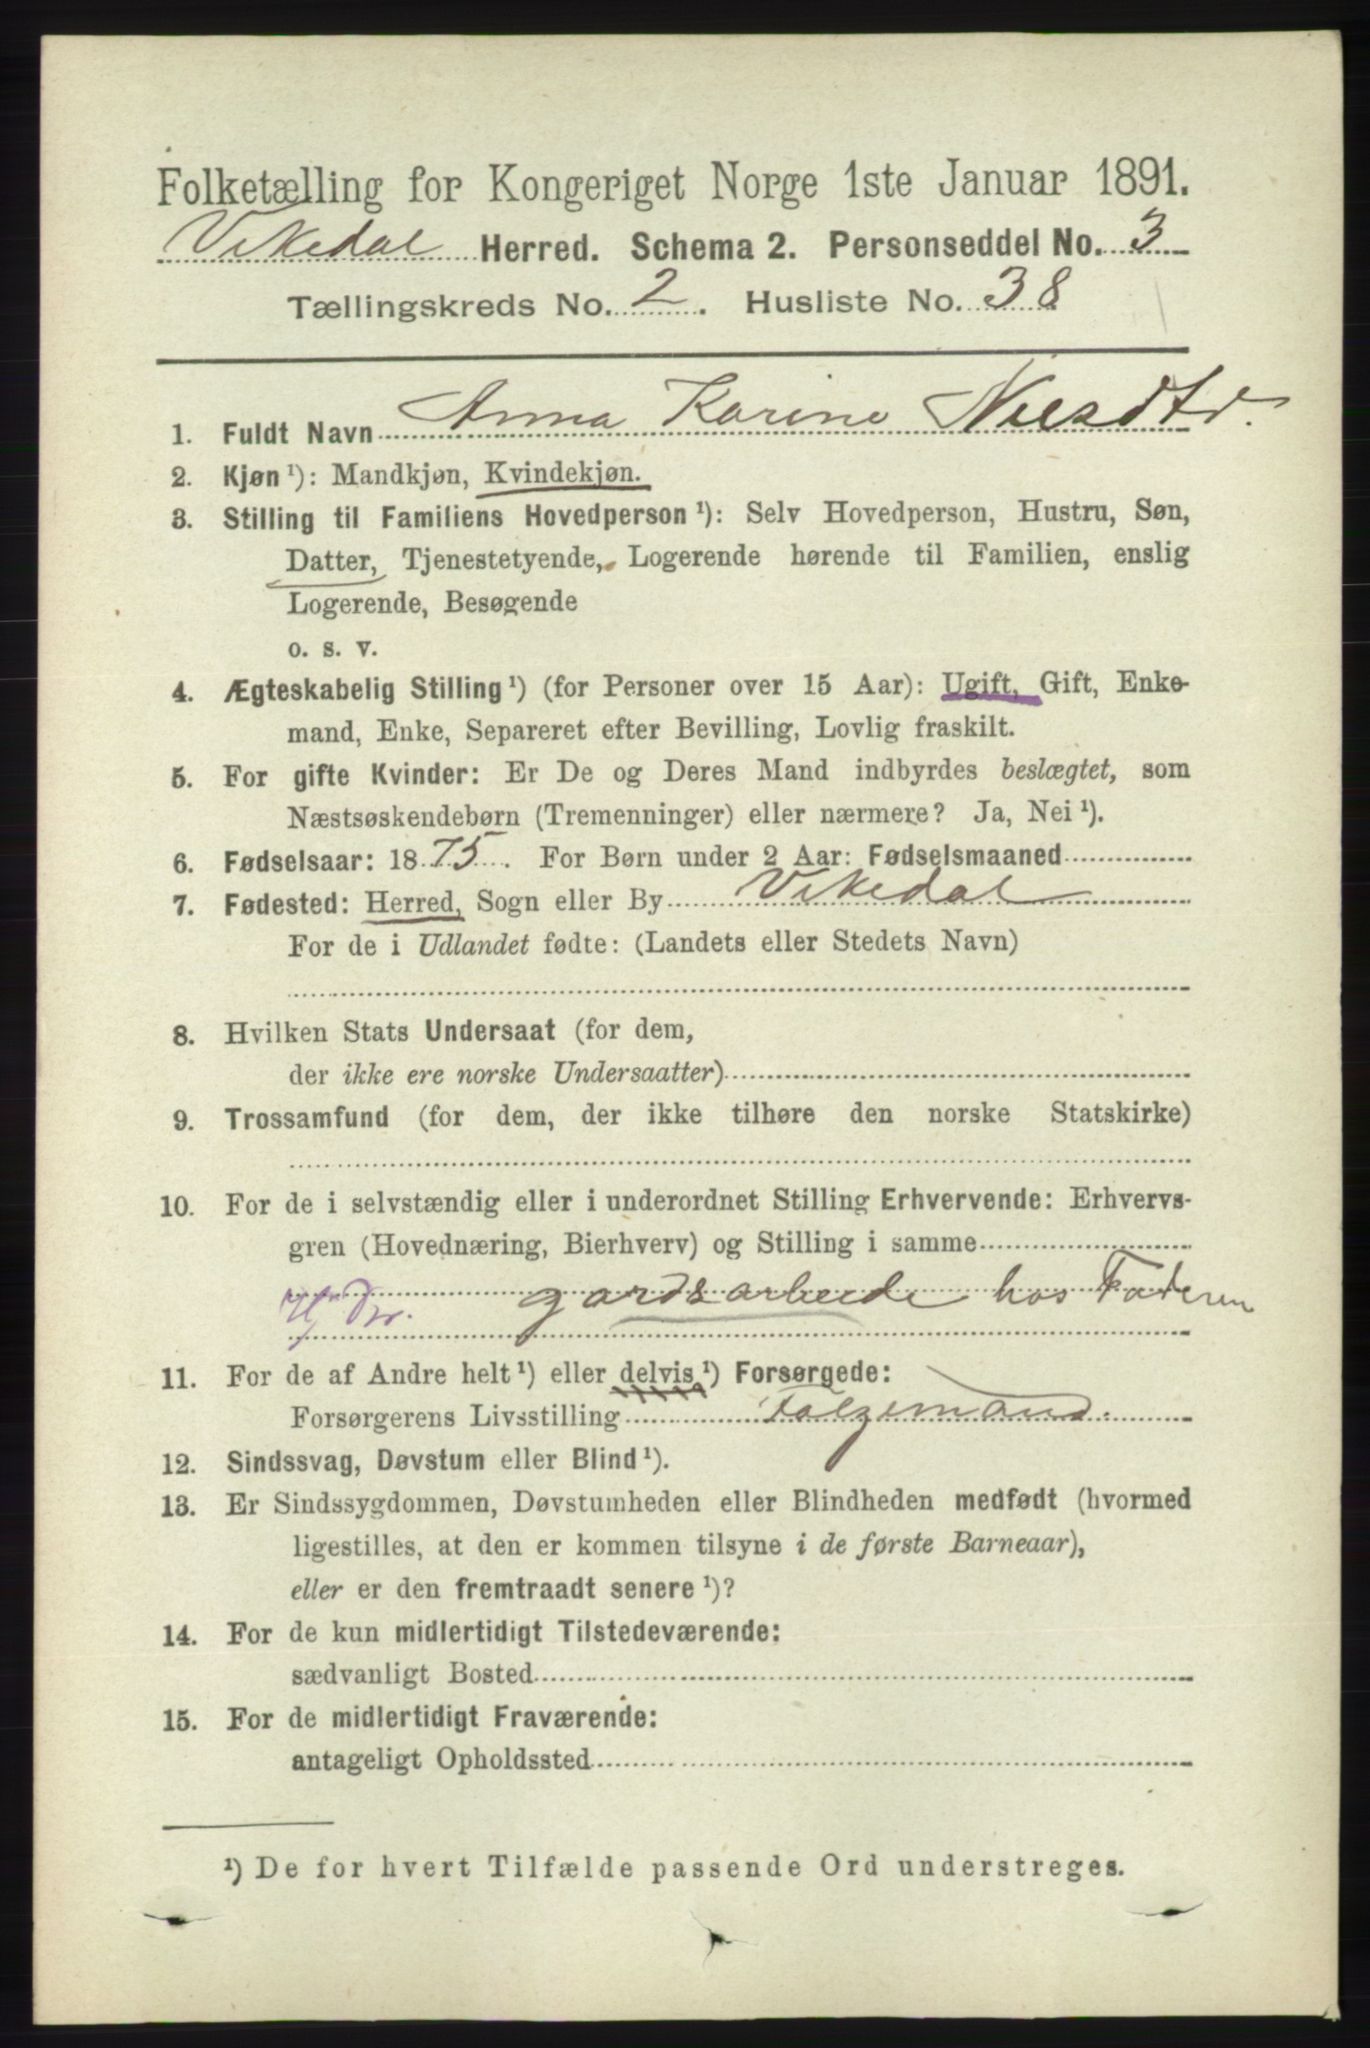 Folketælling for Kongeriget Norge 1ste Januar 1891.
Vikedal Herred. Schema 2. Personseddel No. 3
Tællingskreds No. 2. Husliste No. 38
1. Fuldt Navn Anna Karine Nilsdtr.
2. Kjøn ¹): Mandkjøn, Kvindekjøn.
3. Stilling til Familiens Hovedperson ¹): Selv Hovedperson, Hustru, Søn,
Datter, Tjenestetyende, Logerende hørende til Familien, enslig
Logerende, Besøgende
o. s. v.
4. Ægteskabelig Stilling ¹) (for Personer over 15 Aar): Ugift, Gift, Enke-
mand, Enke, Separeret efter Bevilling, Lovlig fraskilt.
5. For gifte Kvinder: Er De og Deres Mand indbyrdes beslægtet, som
Næstsøskendebørn (Tremenninger) eller nærmere? Ja, Nei ¹).
6. Fødselsaar: 1875. For Børn under 2 Aar: Fødselsmaaned
7. Fødested: Herred, Sogn eller By Vikedal
For de i Udlandet fødte: (Landets eller Stedets Navn)
8. Hvilken Stats Undersaat (for dem,
der ikke ere norske Undersaatter)
9. Trossamfund (for dem, der ikke tilhøre den norske Statskirke)
10. For de i selvstændig eller i underordnet Stilling Erhvervende: Erhvervs-
gren (Hovednæring, Bierhverv) og Stilling i samme
gardsarbeide hos Faderen
11. For de af Andre helt ¹) eller delvis ¹) Forsørgede:
Forsørgerens Livsstilling
12. Sindssvag, Døvstum eller Blind ¹).
13. Er Sindssygdommen, Døvstumheden eller Blindheden medfødt (hvormed
ligestilles, at den er kommen tilsyne i de første Barneaar),
eller er den fremtraadt senere ¹)?
14. For de kun midlertidigt Tilstedeværende:
sædvanligt Bosted
15. For de midlertidigt Fraværende:
antageligt Opholdssted
¹) De for hvert Tilfælde passende Ord understreges.